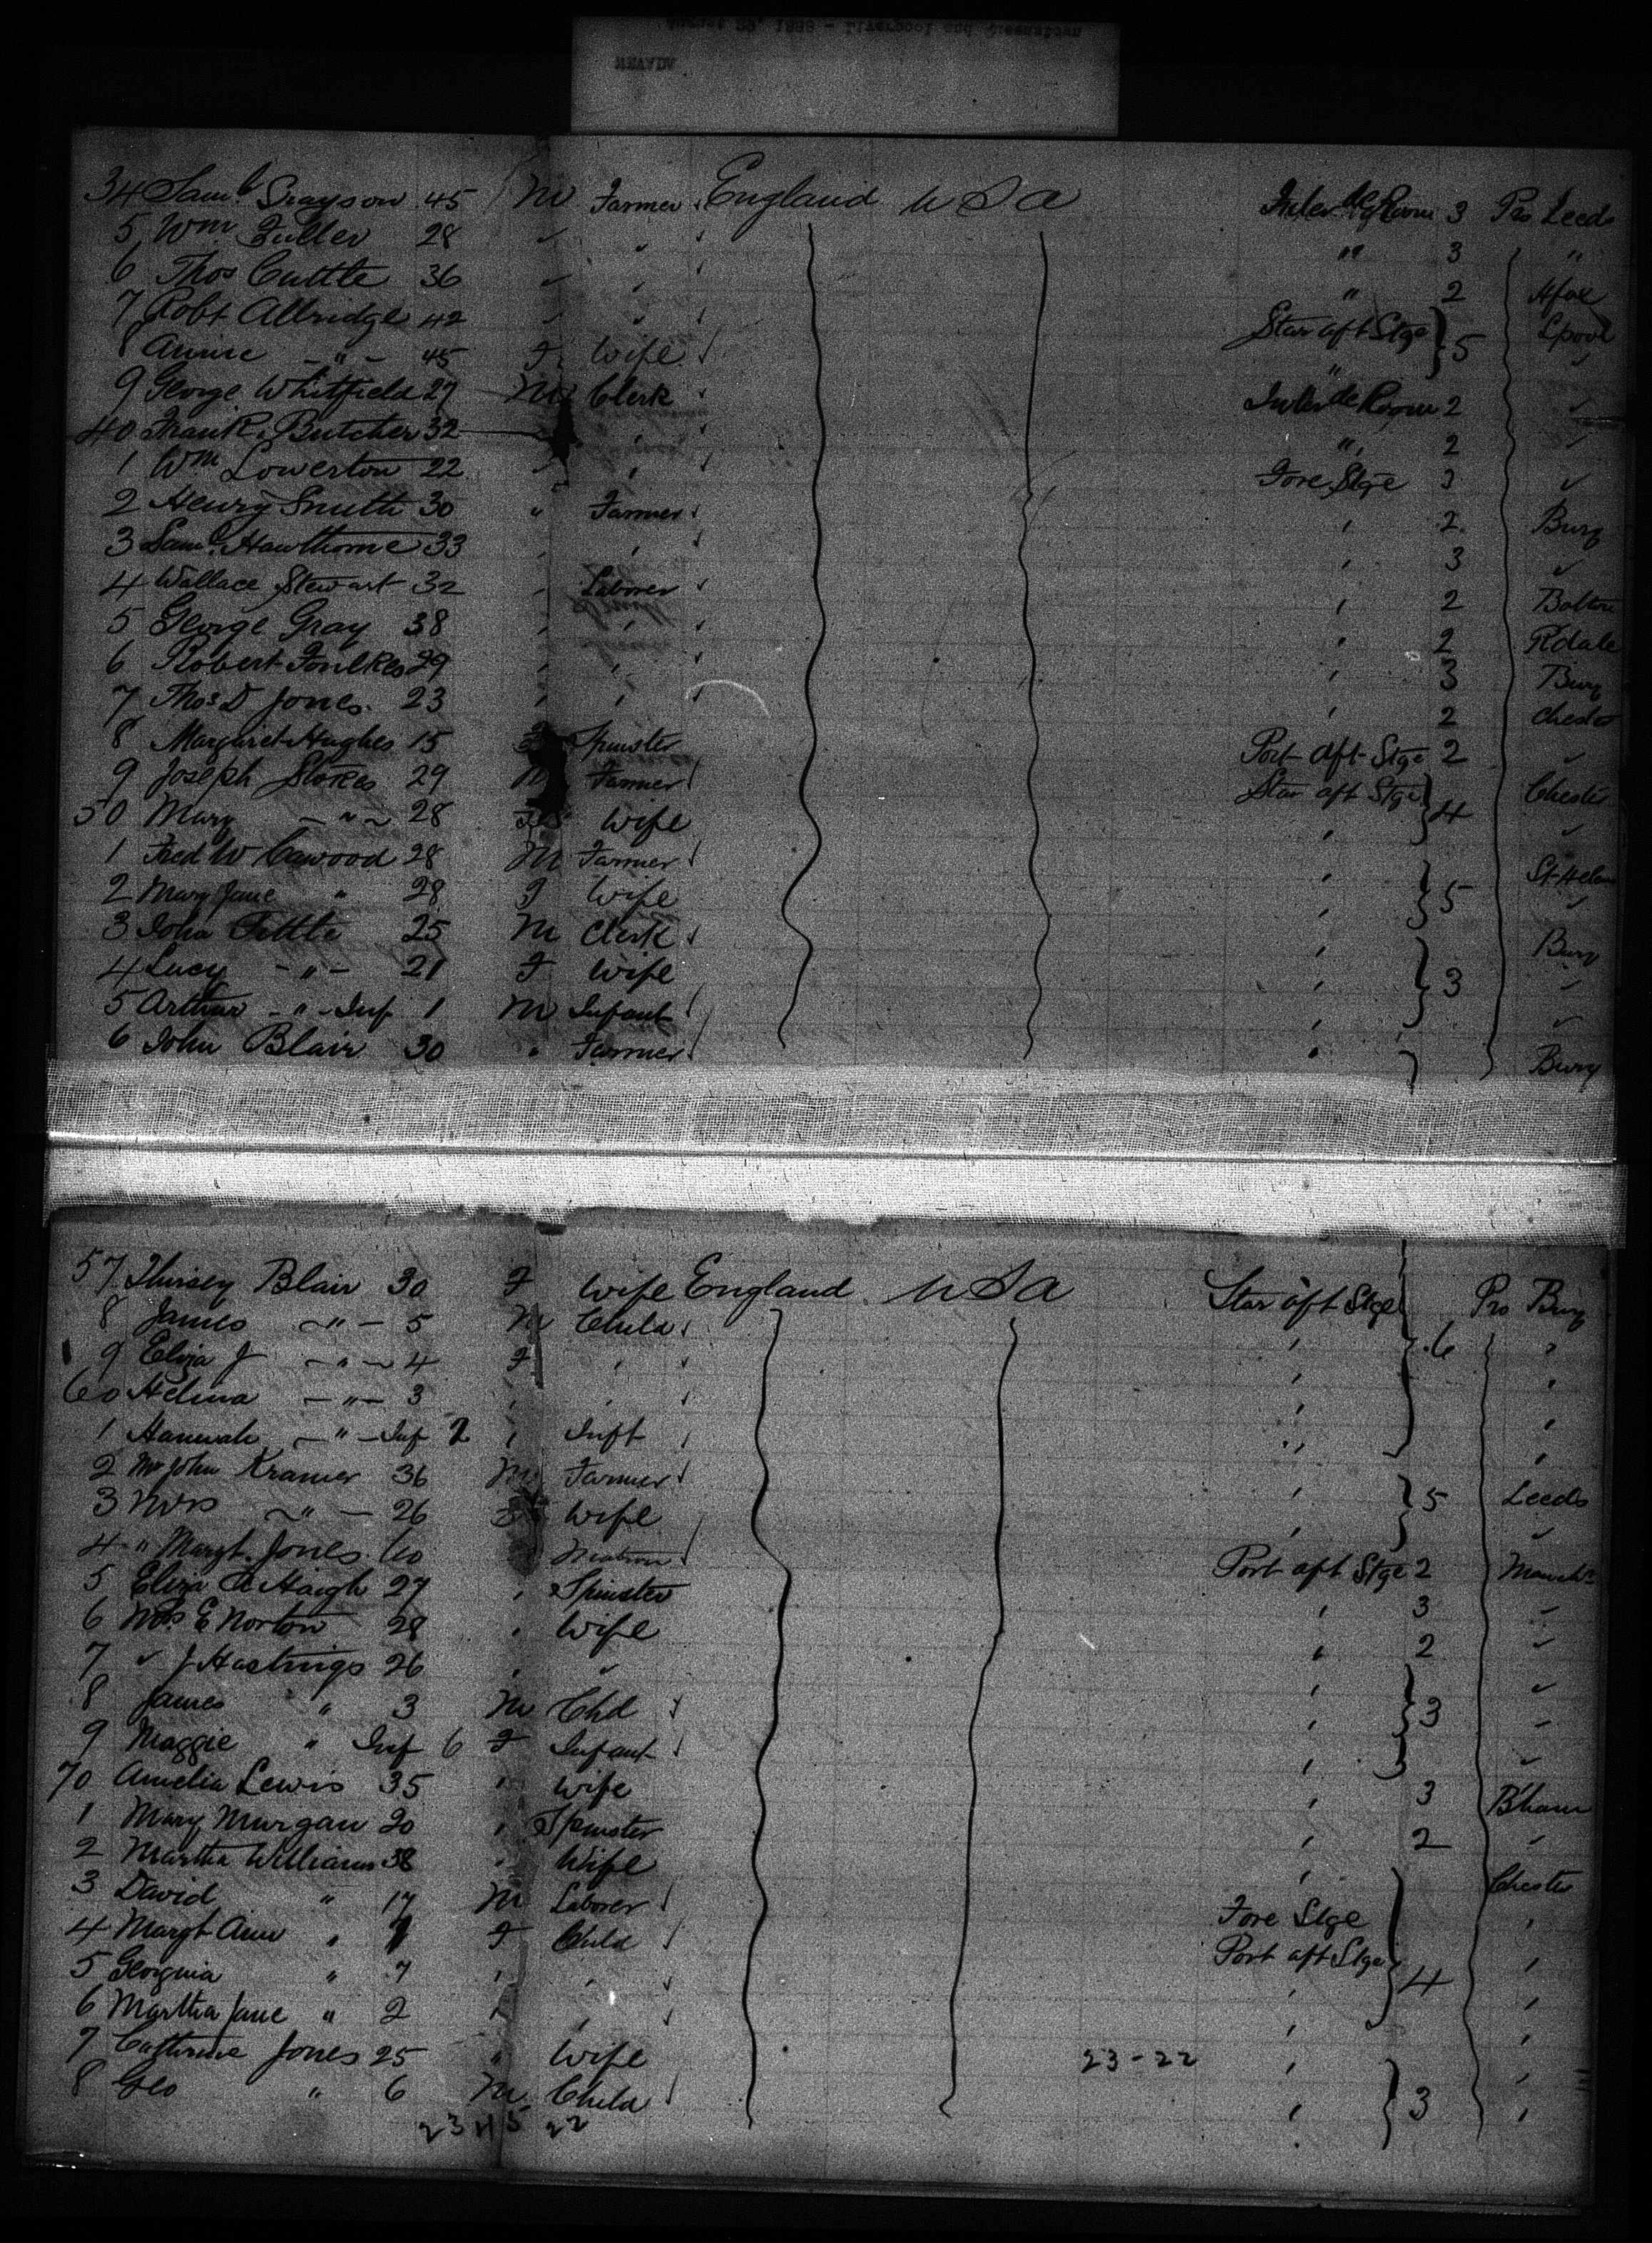 34 Saml. Grayson 45 M Farmer England U S A Inter de Room 3 Pro Leeds
5 Wm. Fuller 28 " " " 3 "
6 Thos Cuttle 36 " " " 2 Hfax
7 Robt Allridge 42 " " Star aft Stge } 5 Lpool
8 Annie - " - 45 F Wife " "
9 George Whitfield 27 M Clerk Inter de Room 2 "
40 Frank Butcher 32 " " " 2 "
1 Wm Lowerton 22 " " Fore Stge 3 "
2 Henry Smith 30 " Farmer " 2 Bury
3 Saml. Hawthorne 33 " " " 3 "
4 Wallace Stewart 32 " Laborer " 2 Bolton
5 George Gray 38 " " " 2 Rdale
6 Robert Foulkes 29 " " " 3 Bury
7 Thos D Jones 23 " " " 2 Chester
8 Margaret Hughes 15 F Spinster Port aft Stge 2 "
9 Joseph Stokes 29 M Farmer Star aft Stge } 4 Chester
50 Mary - " - 28 Wife " "
1 Fred W Cawood 28 M Farmer " } 5 St Helens
2 Mary Jane " 28 F Wife " "
3 John Tittle 25 M Clerk " } 3 Bury
4 Lucy - " - 21 F Wife " "
5 Arthur - " - Inf 1 M Infant " "
6 John Blair 30 " Farmer " } Bury
57 Blair 30 F Wife England U S A Star aft Stge Pro Bury
8 James - " - 5 M Child " } 6 "
9 Eliza J - " - 4 F " " "
60 Helina - " - 3 " " " "
1 Hannah - " - Inf 2 " Inft " "
2 Mr John Kramer 36 M Farmer " } 5 Leeds
3 Mrs - " - 26 F Wife " "
4 " Margt. Jones 60 Matron Port aft Stge 2 Manchr
5 Eliza A Haigh 27 " Spinster " 3 "
6 Mrs E Norton 28 " Wife " 2 "
7 " J Hastings 26 " " " } 3 "
8 James " 3 M Chd " "
9 Maggie " Inf 6 F Infant " "
70 Amelia Lewis 35 " Wife " 3 B'ham
1 Mary Murgan 20 " Spinster " 2 "
2 Martha Williams 38 " Wife " Chester
3 David " 17 M Laborer Fore Stge "
4 Margt Ann " F Child Port aft Stge } 4 "
5 Georgina " 7 " " " "
6 Martha Jane " 2 " " " "
7 Catherine Jones 25 " Wife 23-22 " "
8 Geo " 6 M Child " } 3 "
23 45 22